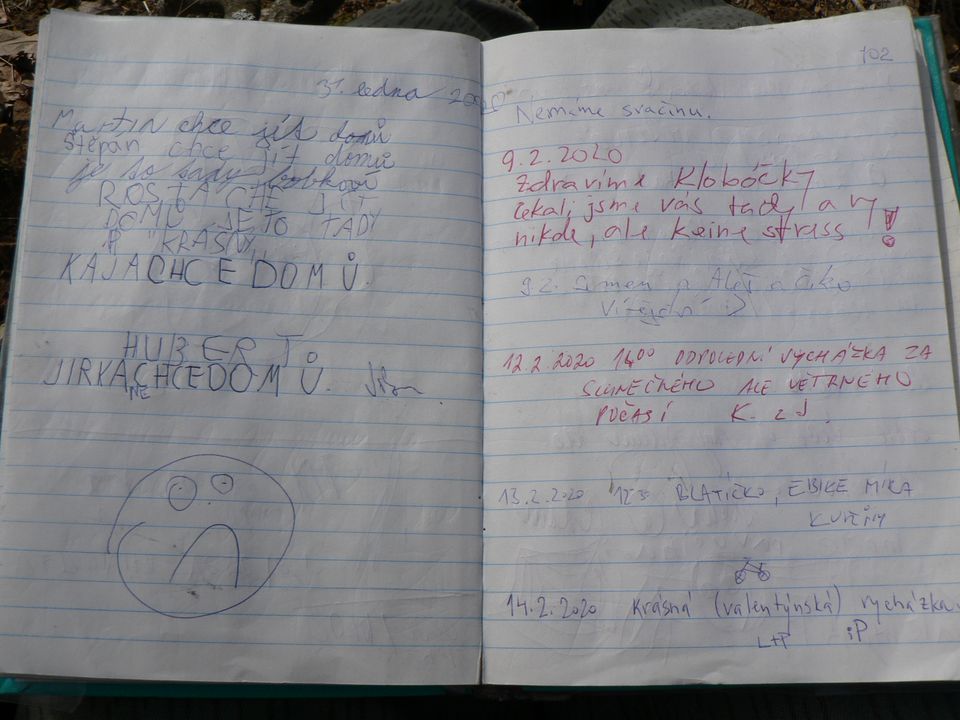 31. ledna 2020
Martin chce jít domů
Štěpán chce jít domů
je to tady
ROSTA CHCE JÍT
DOMŮ JE TO TADY
KRÁSNÝ
KAJA CHCE DOMŮ.
HUBERT
JIRKA NECHCE DOMŮ.
102
Nemáme svačinu.
9.2.2020
Zdravíme Klobóčky
čekali jsme vás tady a vy
nikde, ale keine strass!
9.2. a Aleš a
12.2.2020 1400 ODPOLEDNÍ VYCHÁZKA ZA
SLUNEČNÉHO ALE VĚTRNÉHO
POČASÍ K. z J.
13.2.2020 BLATÍČKO, EBIKE MÍRA
14.2.2020 Krásná (valentýnská) vycházka.
L+P iP